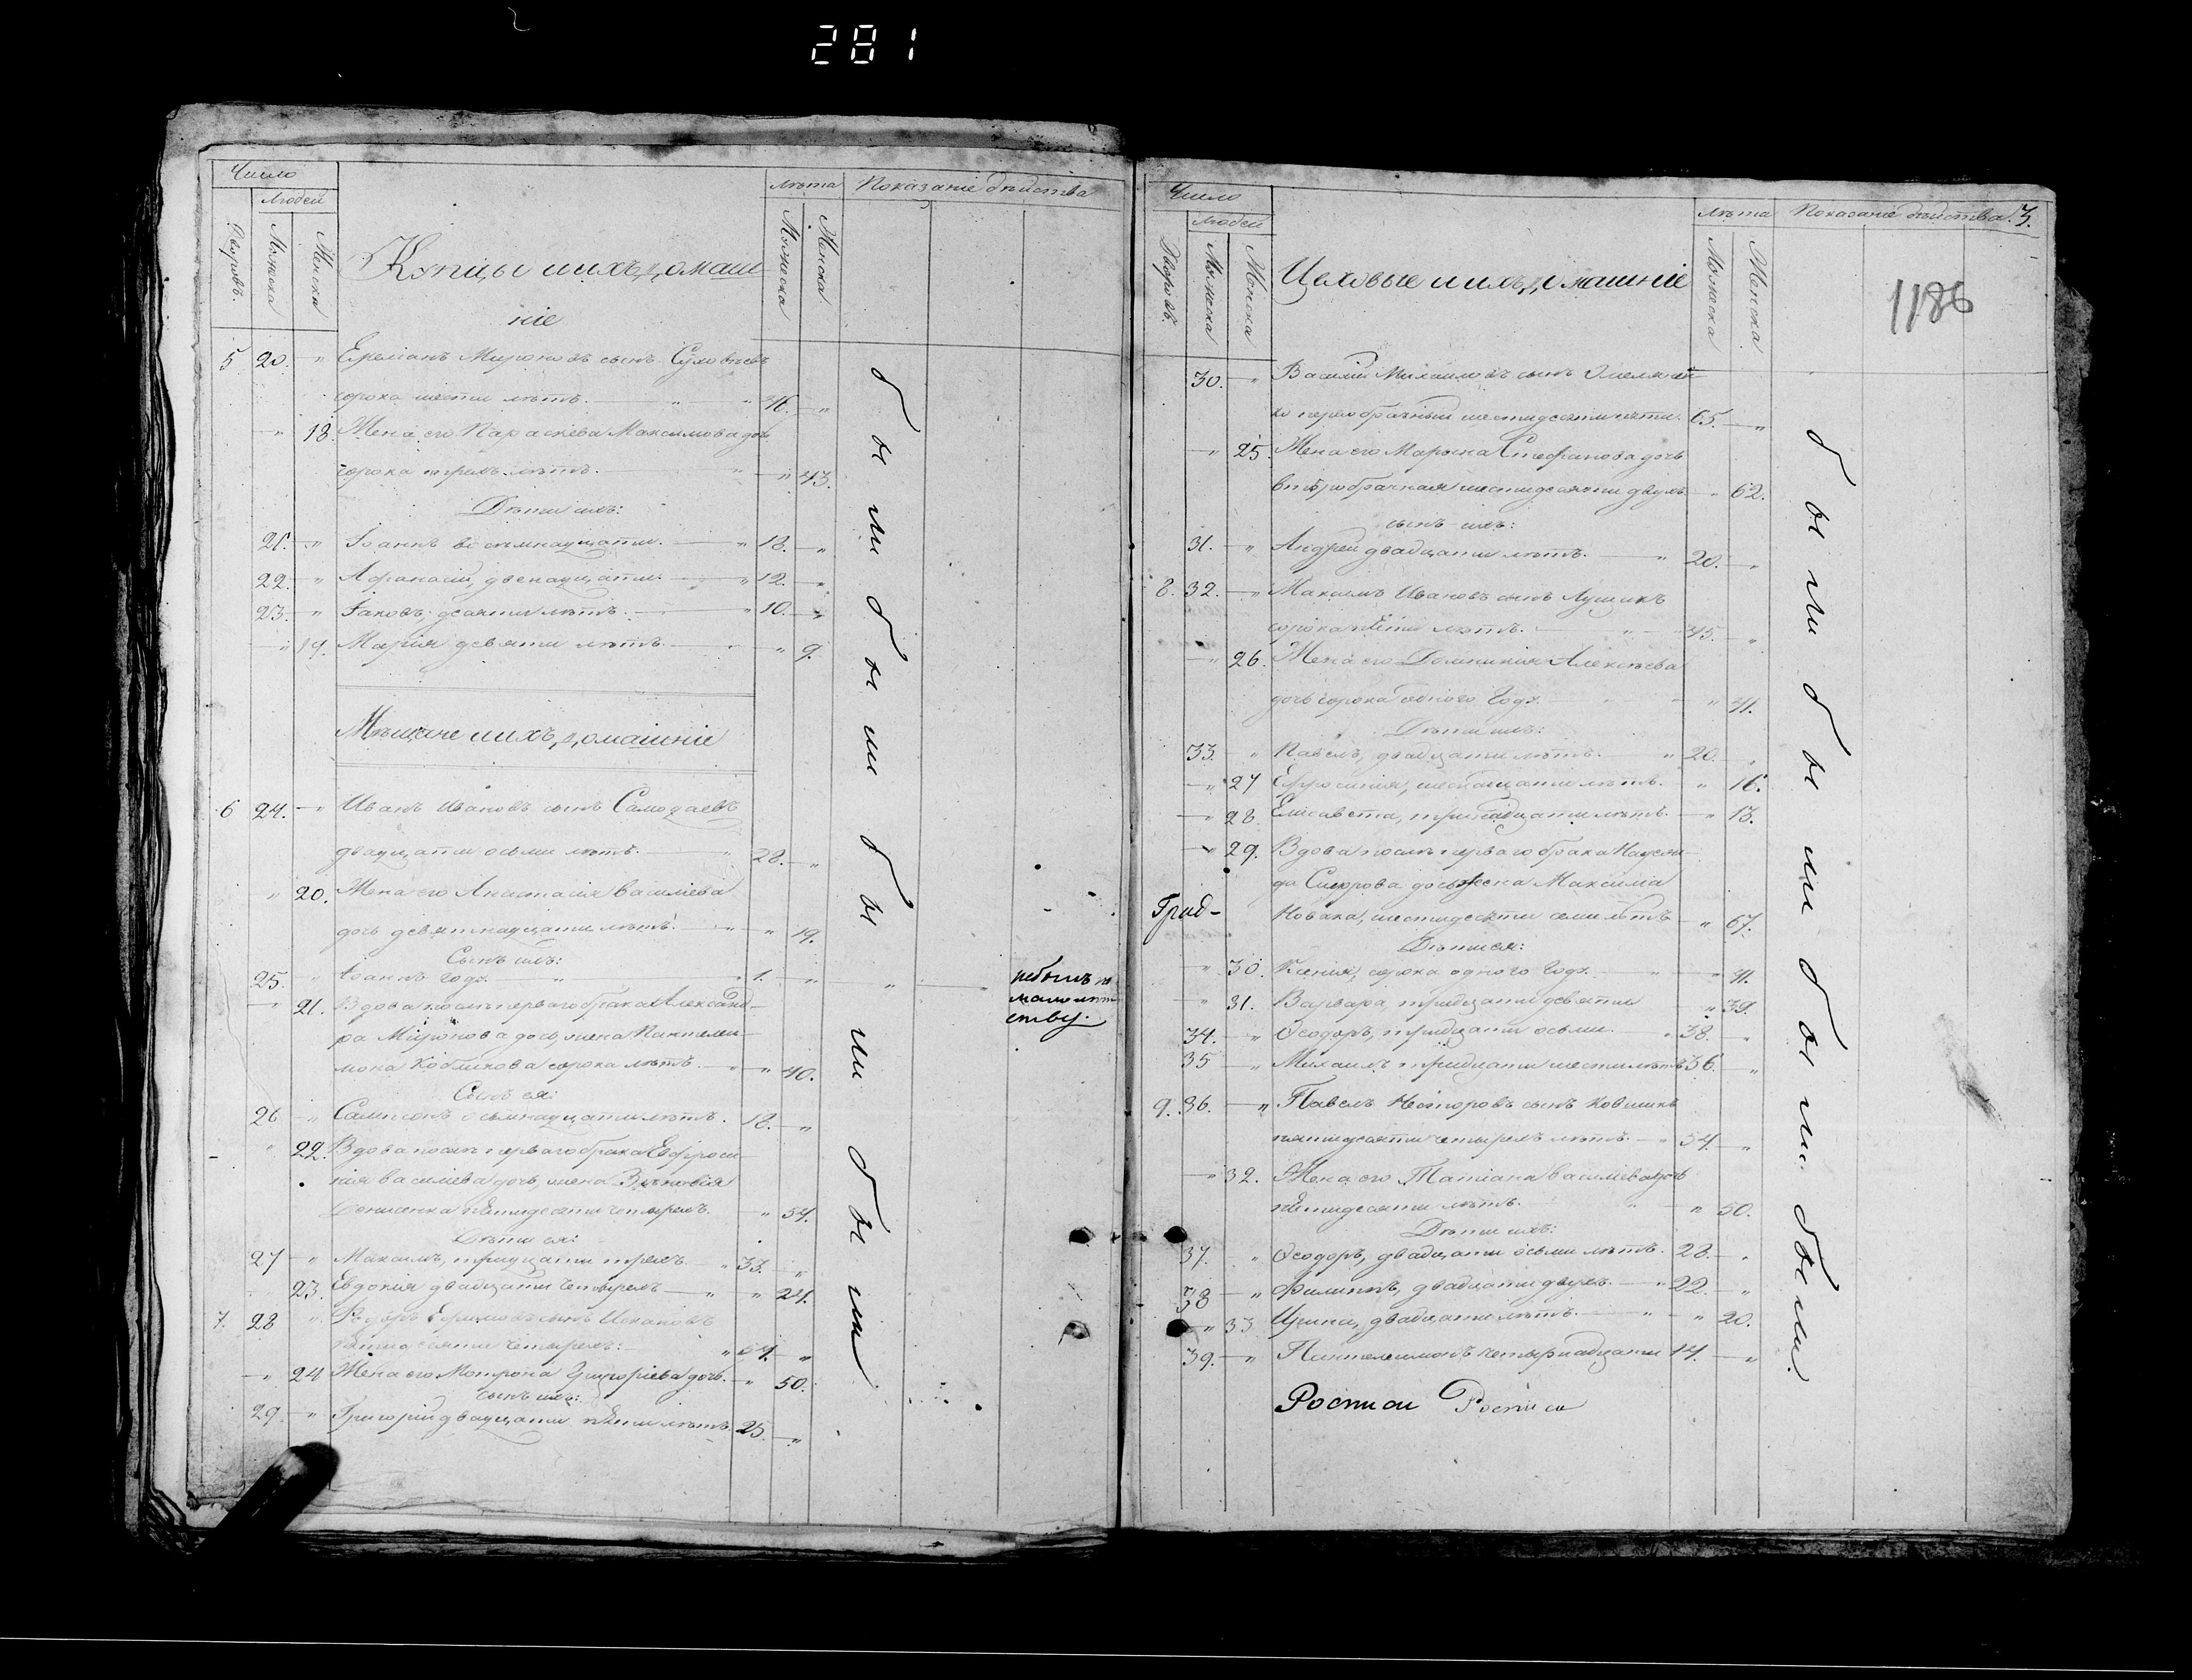 281
Число
Людей
лѣта Показаніе дѣйства
Дворовъ.
Мужеска
Женска
Мужеска
Женска
Купцы и ихъ домаш
ніе
5 20. " Емеліанъ Мироновъ сынъ
сорока шести лѣтъ. " 46. "
" 18. Жена его Параскева Максимова дочь
сорока трехъ лѣтъ. " " 43.
Дѣти ихъ:
21. " Іоаннъ восьмнадцати. " 18. "
22. " Афанасій, двенадцати. " 12. "
23. " Іаковъ, десяти лѣтъ. " 10. "
" 19. Марія девяти лѣтъ. " 9.
Мѣщане и ихъ домашніе
6 24. " Иванъ Ивановъ сынъ
двадцати осьми лѣтъ. " 28. "
" 20. Жена его Анастасія Василіева
дочь девятнадцати лѣтъ. " 19.
Сынъ ихъ:
25. " Іоаннъ годъ. " 1. " " "
небылъ по
малолѣт
ству.
" 21. Вдова послѣ перваго брака Александ-
ра Миронова дочь, жена Пантели-
мона Кобликова сорока лѣтъ. " 40.
Сынъ ея:
26 " Сампсонъ осьмнадцати лѣтъ. 18. "
" 22. Вдова послѣ перваго брака Евфроси-
нія Василіева дочь, жена Зѣновія
пятидесяти четырехъ. " 54.
Дѣти ея:
27 " Максимъ, тридцати трехъ. " 33. "
" 23. Евдокія двадцати четырехъ " " 24.
7. 28 " Ефимовъ сынъ
пятидесяти четырехъ: " 54. "
" 24 Жена его Мотрона Григоріева дочь. " 50.
сынъ ихъ:
29. " Григорій двадцати пяти лѣтъ. 25. "
были были были были
Число
Людей
лѣта Показаніе дѣйства. 3.
Дворовъ.
Мужеска
Женска
Мужеска
Женска
Цеховые и ихъ домашніе
1186
30. " Василій Михаиловъ сынъ Омелянен-
ко первобрачный шестидесяти пяти. 65. "
" 25. Жена его Марѳина Стефанова дочь
второбрачная шестидесяти двухъ. " 62.
сынъ ихъ:
31. " Андрей двадцати лѣтъ. " 20. "
8. 32. " Максимъ Ивановъ сынъ Лущикъ
сорока пяти лѣтъ. " 45. "
" 26. Жена его Домникія Алексѣева
дочь сорока одного годъ. " 41.
Дѣти ихъ:
33. " Павелъ, двадцати лѣтъ. " 20. "
" 27 Ефросинія, шеснадцати лѣтъ. " 16.
" 28. Елисавета, тринадцати лѣтъ. " 13.
" 29. Вдова послѣ перваго брака
да Сидорова дочь жена Максима
Град- Новака, шестидесяти семи лѣтъ " 67.
Дѣти ея:
" 30. Ксенія, сорока одного годъ. " 41.
" 31. Варвара, тридцати девяти " 39.
34. " Ѳеодоръ, тридцати осьми. " 38. "
35 " Михаилъ тридцати шести лѣтъ 36. "
9. 36. " Павелъ Несторовъ сынъ Ковшикъ
пятидесяти четырехъ лѣтъ. " 54. "
" 32. Жена его Татіана Василіева дочь
пятидесяти лѣтъ. " " 50.
Дѣти ихъ:
37. " Ѳеодоръ, двадцати осьми лѣтъ. 28. "
38 " Филиппъ, двадцати двухъ. " 22. "
" 33 Ирина, двадцати лѣтъ. " " 20.
39. " Пантелеимонъ четырнадцати 14. "
были были были были.
Росписи Росписи